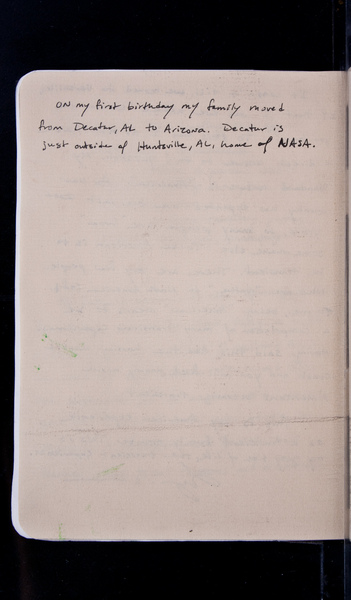 ON my first birthday my family moved
from Decatur, AL to Arizona. Decatur is
just outside of Huntsville, AL, home of NASA.